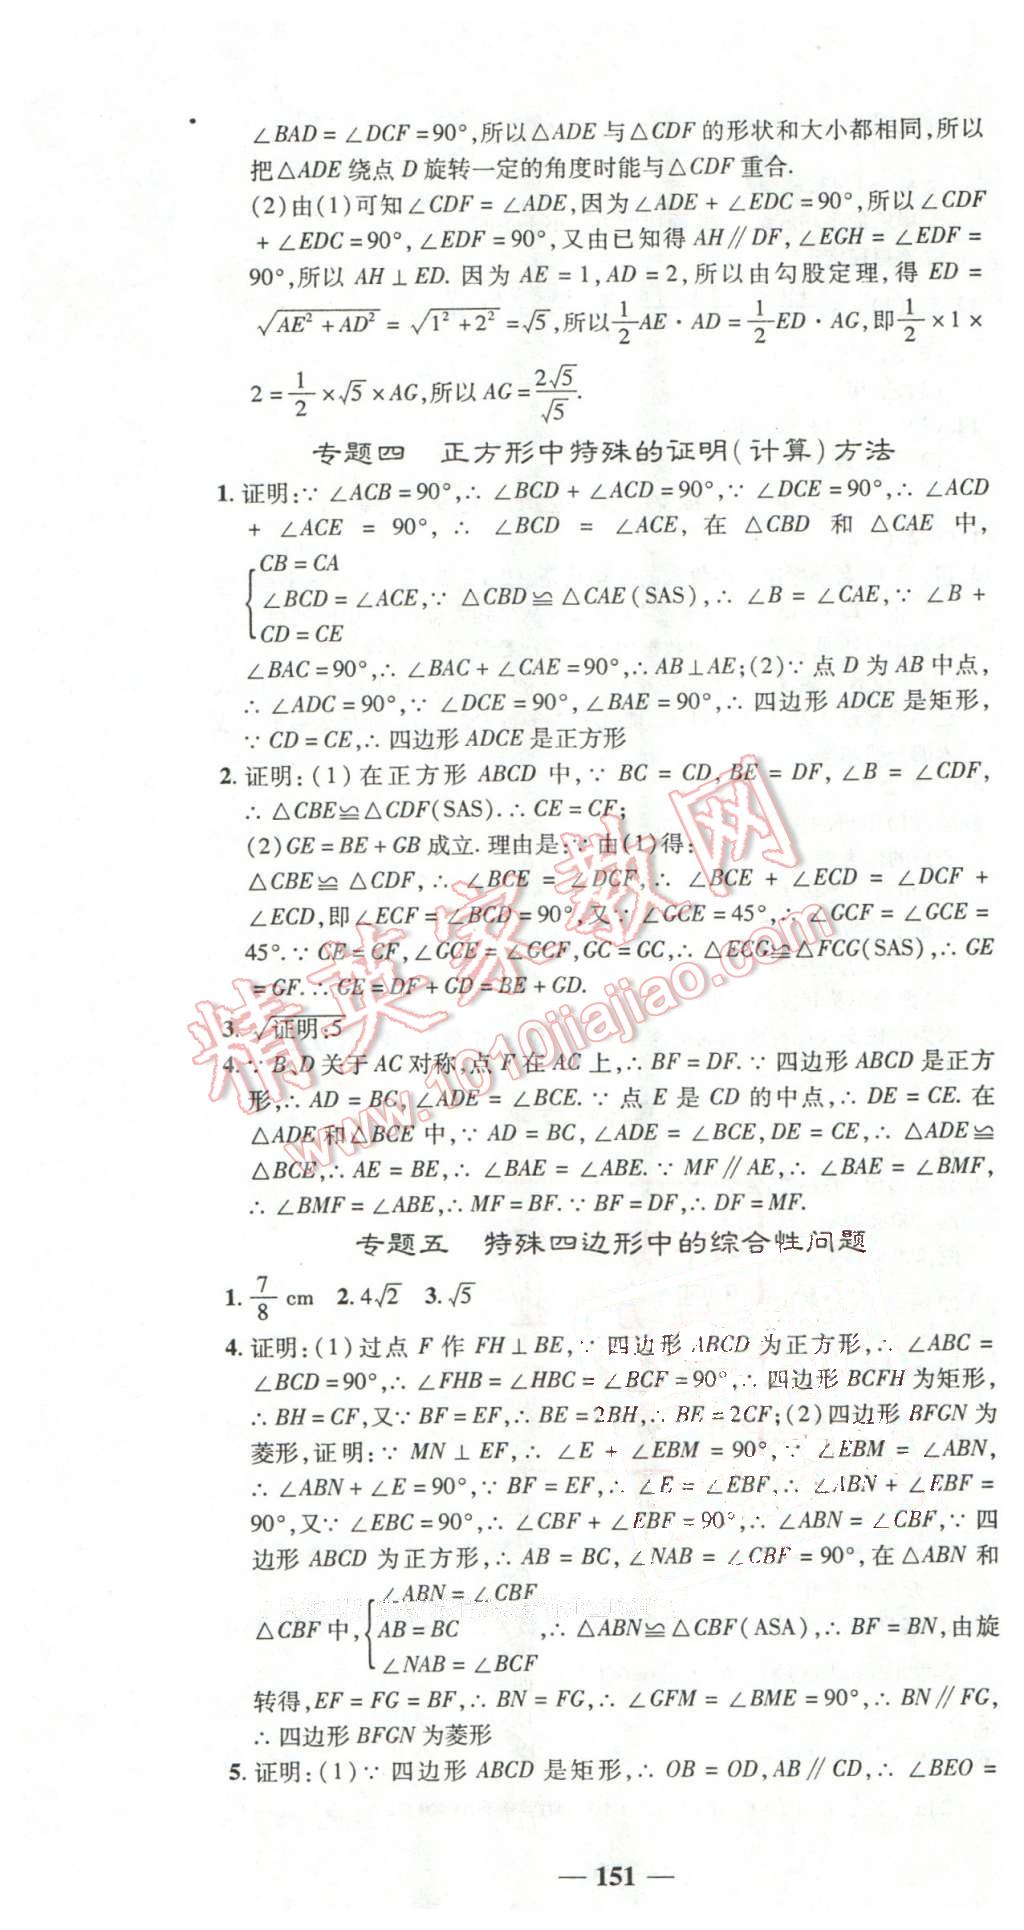 ∠BAD=∠DCF=90°,所以△ADE与△CDF的形状和大小都相同,所以
把△ADE绕点D旋转一定的角度时能与△CDF重合.
(2)由(1)可知∠CDF=∠ADE,因为∠ADE+∠EDC=90°,所以∠CDF
+∠EDC=90°,∠EDF=90°,又由已知得AH∥DF,∠EGH=∠EDF=
90°,所以AH⊥ED.因为AE=1,AD=2,所以由勾股定理,得ED=
√(AE²+AD²)=√(1²+2²)=√5,所以1/2AE·AD=1/2ED·AG,即1/2×1×
2=1/2×√5×AG,所以AG=2√5/√5.
专题四 正方形中特殊的证明(计算)方法
1.证明:∵∠ACB=90°,∴∠BCD+∠ACD=90°,∵∠DCE=90°,∴∠ACD
+∠ACE=90°,∴∠BCD=∠ACE,在△CBD和△CAE中,
CB=CA
∠BCD=∠ACE,∵△CBD≌△CAE(SAS),∴∠B=∠CAE,∵∠B+
CD=CE
∠BAC=90°,∴∠BAC+∠CAE=90°,∴AB⊥AE;(2)∵点D为AB中点,
∴∠ADC=90°,∵∠DCE=90°,∠BAE=90°,∴四边形ADCE是矩形,
∵CD=CE,∴四边形ADCE是正方形
2.证明:(1)在正方形ABCD中,∵BC=CD,BE=DF,∠B=∠CDF,
∴△CBE≌△CDF(SAS).∴CE=CF;
(2)GE=BE+GB成立.理由是:∵由(1)得:
△CBE≌△CDF,∴∠BCE=∠DCF,∴∠BCE+∠ECD=∠DCF+
∠ECD,即∠ECF=∠BCD=90°,又∵∠GCE=45°,∴∠GCF=∠GCE=
45°.∵CE=CF,∠GCE=∠GCF,GC=GC,∴△ECG≌△FCG(SAS),∴GE
=GF.∴GE=DF+GD=BE+GD.
3.√证明:5
4.∵B,D关于AC对称,点F在AC上,∴BF=DF.∵四边形ABCD是正方
形,∴AD=BC,∠ADE=∠BCE.∵点E是CD的中点,∴DE=CE.在
△ADE和△BCE中,∵AD=BC,∠ADE=∠BCE,DE=CE,∴△ADE≌
△BCE,∴AE=BE,∴∠BAE=∠ABE.∵MF∥AE,∴∠BAE=∠BMF,
∴∠BMF=∠ABE,∴MF=BF.∵BF=DF,∴DF=MF.
专题五 特殊四边形中的综合性问题
1.7/8 cm 2.4√2 3.√5
4.证明:(1)过点F作FH⊥BE,∵四边形ABCD为正方形,∴∠ABC=
∠BCD=90°,∴∠FHB=∠HBC=∠BCF=90°,∴四边形BCFH为矩形,
∴BH=CF,又∵BF=EF,∴BE=2BH,∴BE=2CF;(2)四边形BFGN为
菱形,证明:∵MN⊥EF,∴∠E+∠EBM=90°,∵∠EBM=∠ABN,
∴∠ABN+∠E=90°,∵BF=EF,∴∠E=∠EBF,∴∠ABN+∠EBF=
90°,又∵∠EBC=90°,∴∠CBF+∠EBF=90°,∴∠ABN=∠CBF,∵四
边形ABCD为正方形,∴AB=BC,∠NAB=∠CBF=90°,在△ABN和
∠ABN=∠CBF
△CBF中,AB=BC,∴△ABN≌△CBF(ASA),∴BF=BN,由旋
∠NAB=∠BCF
转得,EF=FG=BF,∴BN=FG,∴∠GFM=∠BME=90°,∴BN∥FG,
∴四边形BFGN为菱形
5.证明:(1)∵四边形ABCD是矩形,∴OB=OD,AB∥CD,∴∠BEO=
— 151 —
精英家教网
www.1010jiajiao.com